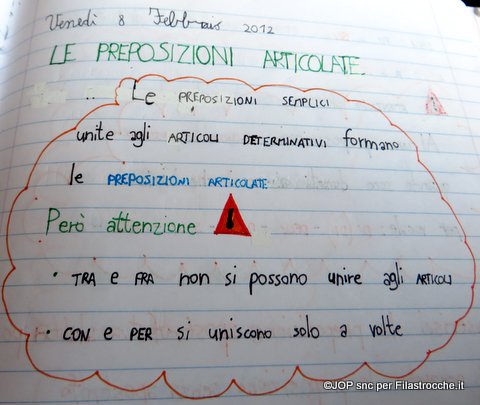 Venedì 8 Febbraio 2012
LE PREPOSIZIONI ARTICOLATE
Le PREPOSIZIONI SEMPLICI
unite agli ARTICOLI DETERMINATIVI formano
le PREPOSIZIONI ARTICOLATE
Però attenzione !
• TRA e FRA non si possono unire agli ARTICOLI
• CON e PER si uniscono solo a volte
©JOP snc per Filastrocche.it